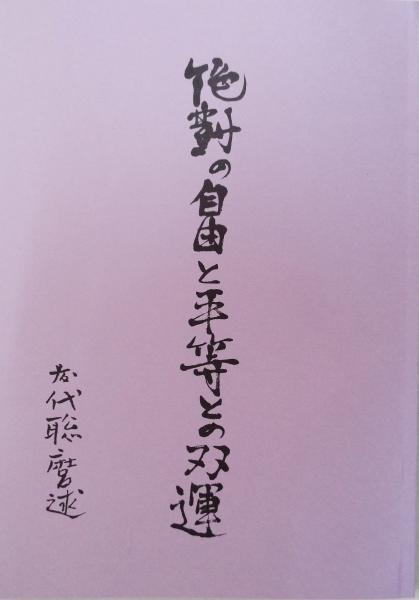 絶對の自由と平等との双運
代聡麿述